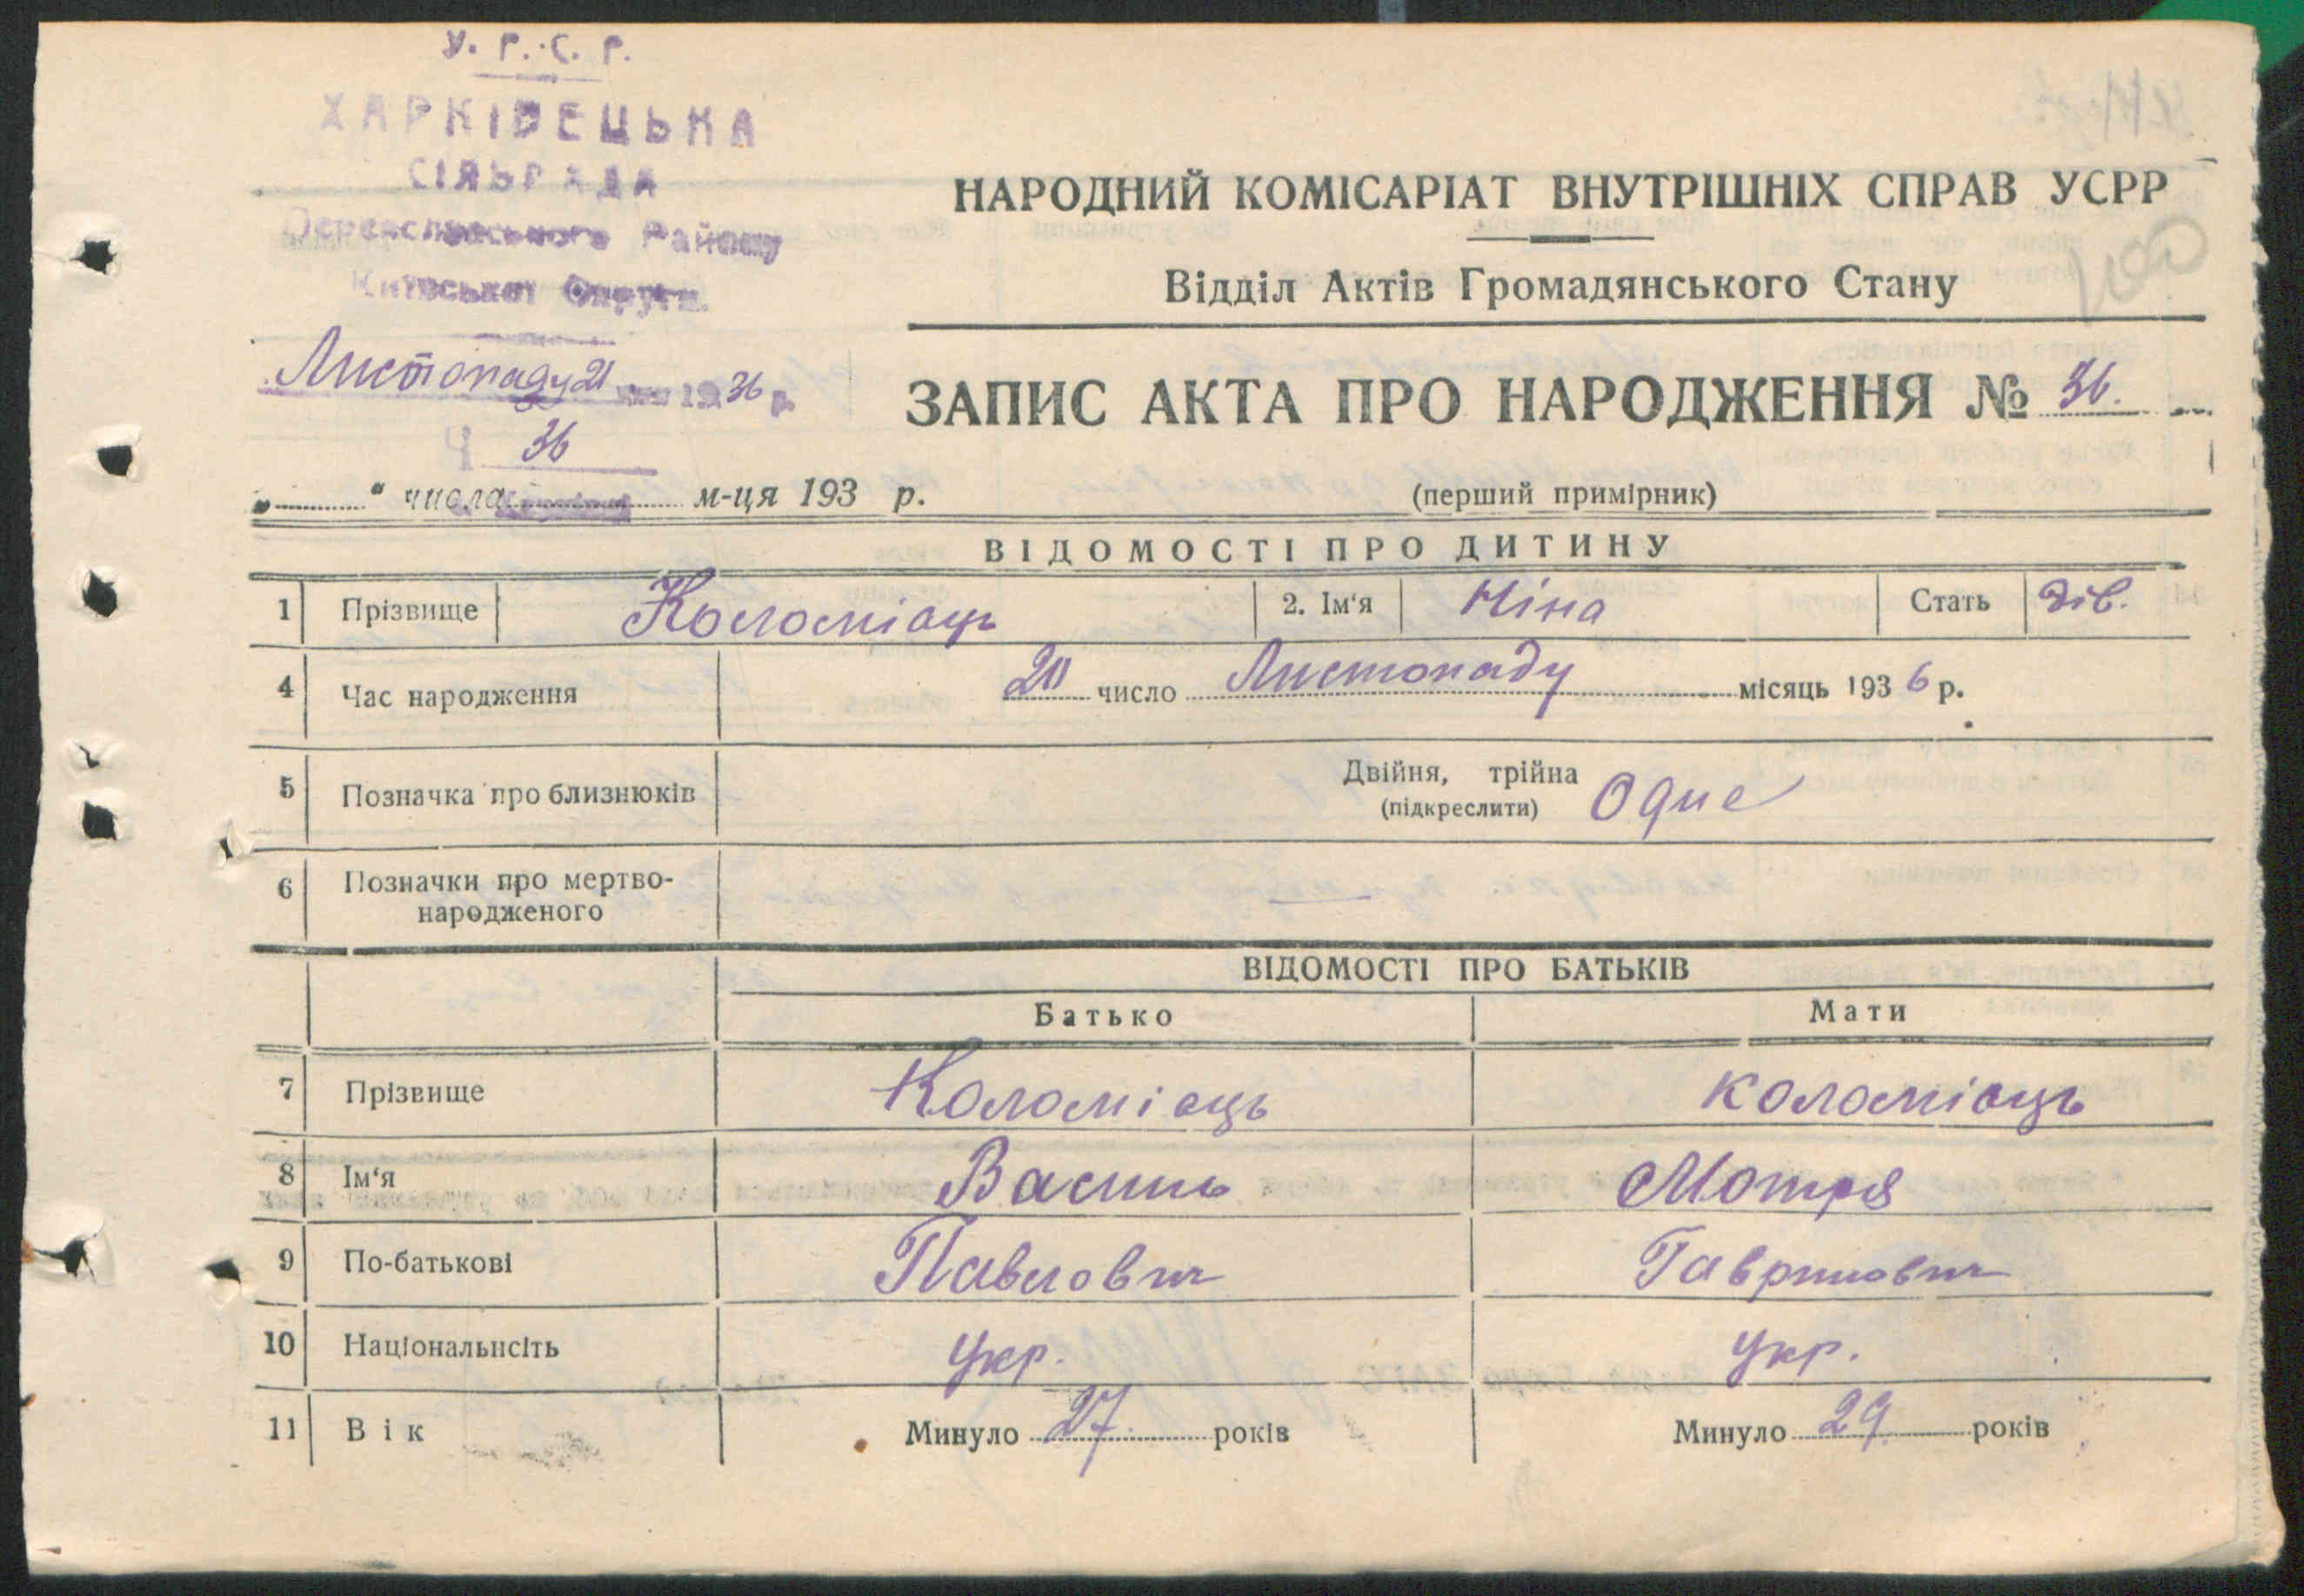 У. Р. С. Р.
ХАРКІВЕЦЬКА
СІЛЬРАДА
Переяславського Району
Київської Округи.
Листопаду 21 1936 р.
Ч 36
„ “ числа м-ця 193 р.
НАРОДНИЙ КОМІСАРІАТ ВНУТРІШНІХ СПРАВ УСРР
Відділ Актів Громадянського Стану
ЗАПИС АКТА ПРО НАРОДЖЕННЯ № 36.
(перший примірник)
ВІДОМОСТІ ПРО ДИТИНУ
1 Прізвище Коломіаць 2. Ім‘я Ніна Стать дів.
4 Час народження 20 число Листопаду місяць 1936 р.
5 Позначка про близнюків Двійня, трійна
(підкреслити) Одне
6 Позначки про мертво-
народженого
ВІДОМОСТІ ПРО БАТЬКІВ
Батько Мати
7 Прізвище Коломіаць Коломіаць
8 Ім‘я Василь Мотря
9 По-батькові Павлович Гаврилович
10 Національнсіть Укр. Укр.
11 Вік Минуло 27 років Минуло 29 років